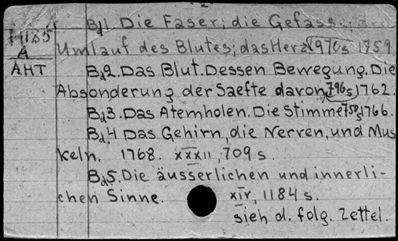 Bd1. Die Faser; die Gefässe; der
Umlauf des Blutes; das Herz. 970s 1759.
A
AHT
Bd2. Das Blut. Dessen Bewegung. Die
Absonderung der Saefte davon, 796s, 1762.
Bd3. Das Atemholen. Die Stimme 750s, 1766.
Bd4 Das Gehirn, die Nerven, und Mus
keln. 1768. XXXII, 709 s.
Bd5. Die äusserlichen und innerli-
chen Sinne. XIV, 1184 s.
sieh d. folg. Zettel.